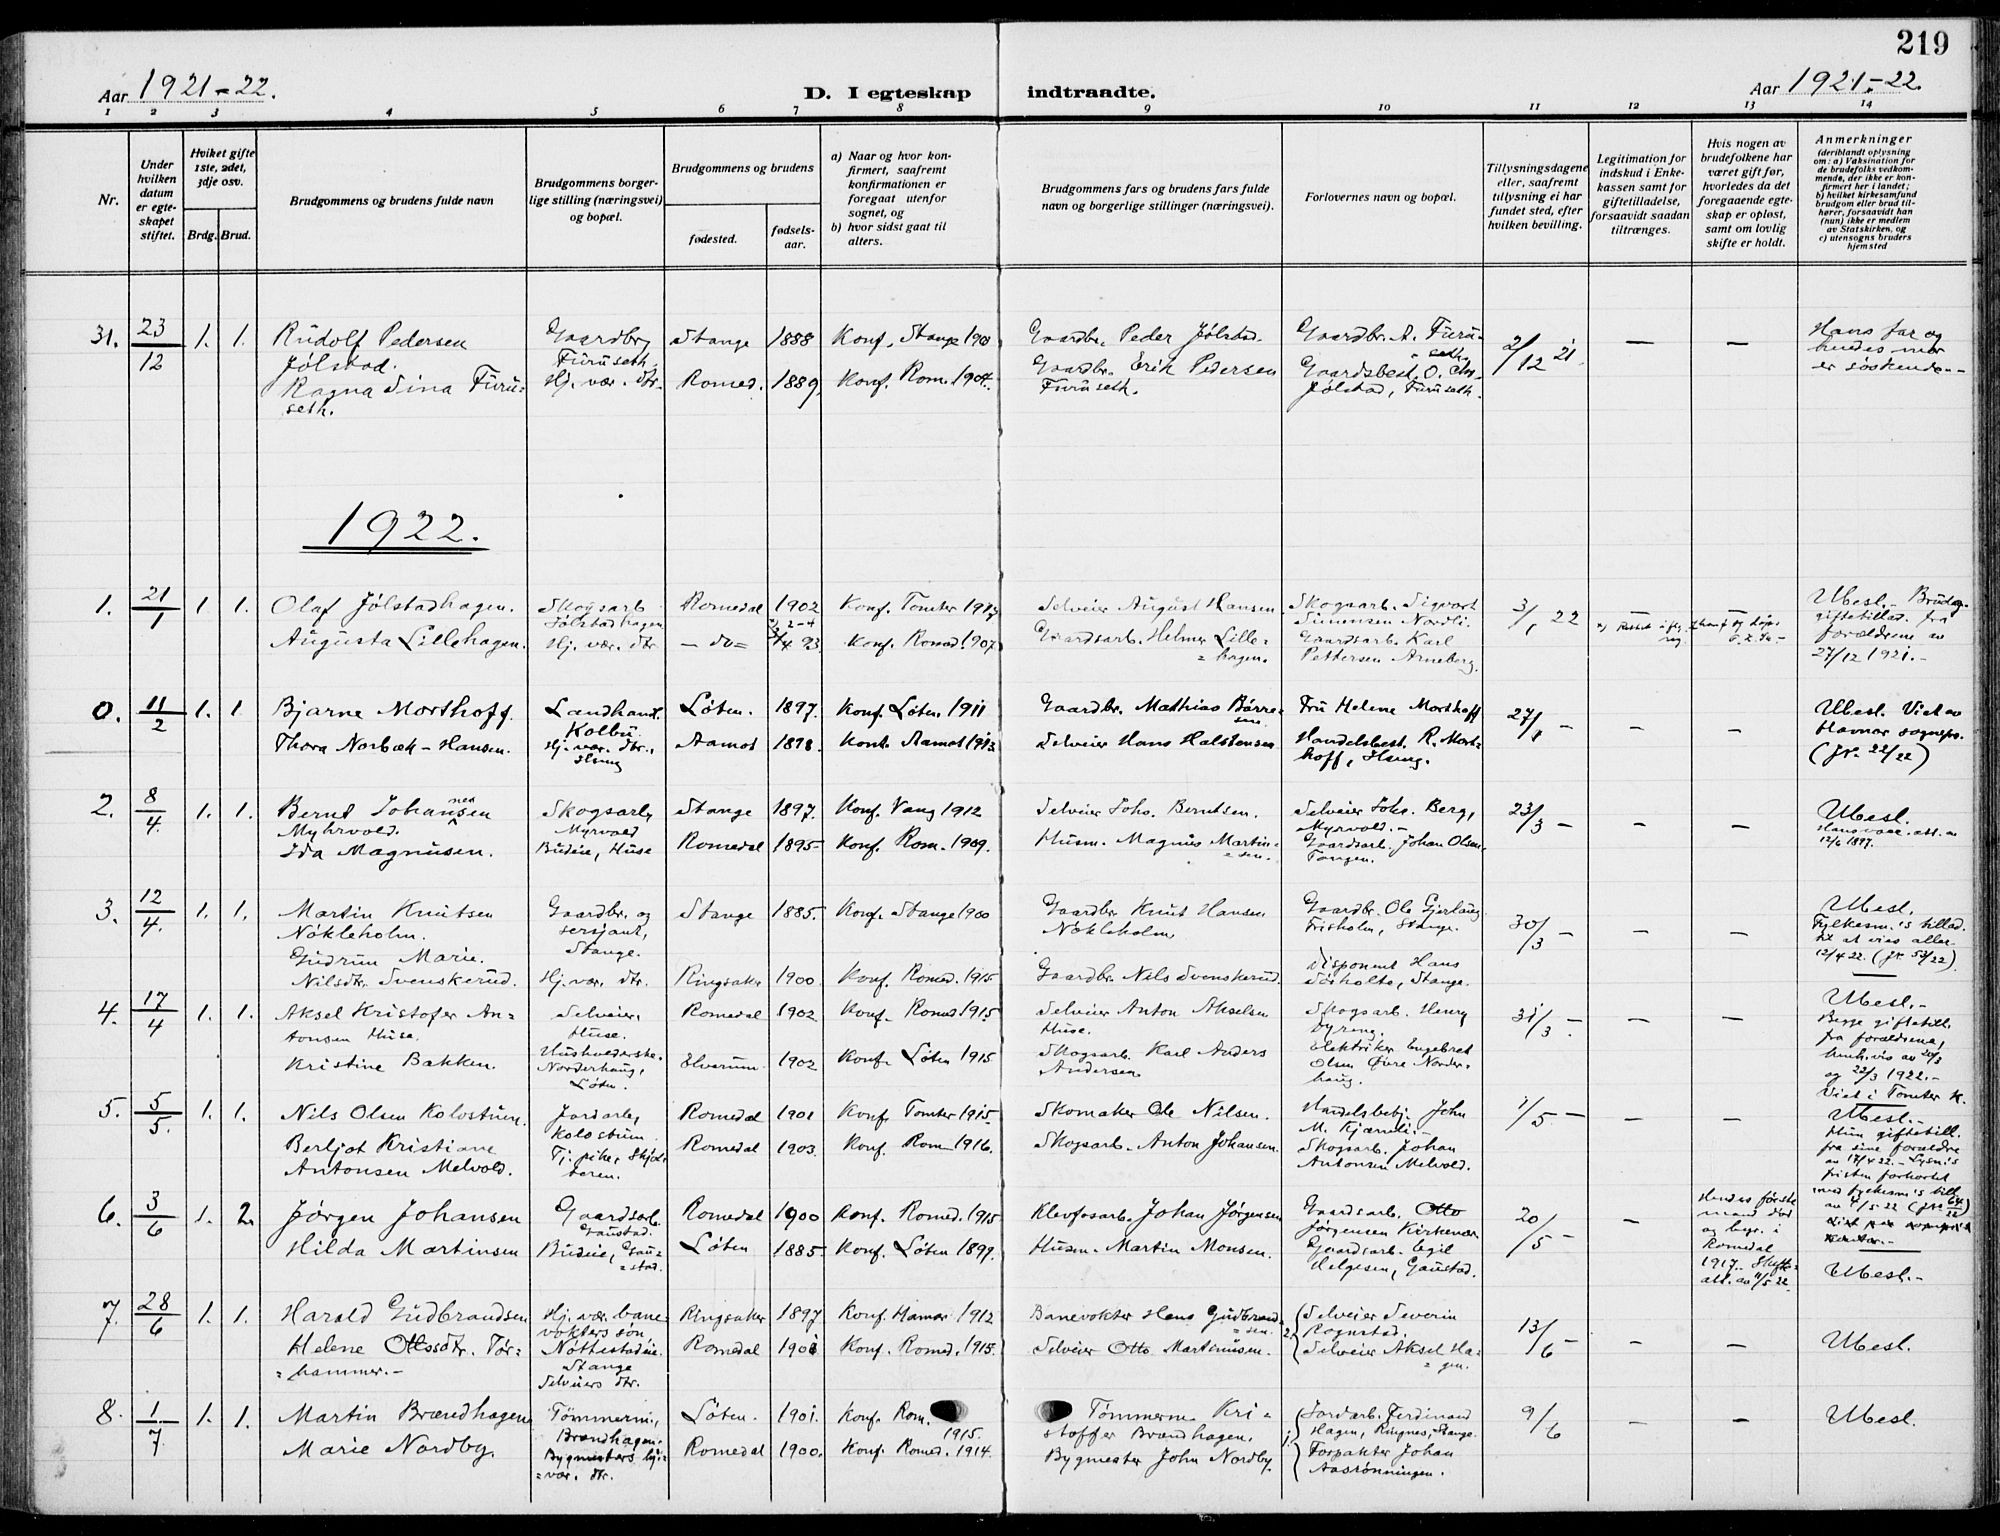 219
Aar 1921-22. D. I egteskap indtraadte. Aar 1921-22.
1 2 3 4 5 6 7 8 9 10 11 12 13 14
Nr.
Under hvilken datum er egteskapet stiftet.
Hviket gifte 1ste, 2det, 3dje osv.
Brdg. Brud.
Brudgommens og brudens fulde navn
Brudgommens borgerlige stilling (næringsvei) og bopæl.
Brudgommens og brudens
fødested.
fødselsaar.
a) Naar og hvor konfirmert, saafremt konfirmationen er foregaat utenfor sognet, og
b) hvor sidst gaat til alters.
Brudgommens fars og brudens fars fulde navn og borgerlige stillinger (næringsvei).
Forlovernes navn og bopæl.
Tillysningsdagene eller, saafremt tillysning ei har fundet sted, efter hvilken bevilling.
Legitimation for indskud i Enkekassen samt for giftetilladelse, forsaavidt saadan tiltrænges.
Hvis nogen av brudefolkene har været gift før, hvorledes da det foregaaende egteskap er opløst, samt om lovlig skifte er holdt.
Anmerkninger (deriblandt oplysning om: a) Vaksination for de brudefolks vedkommende, der ikke er konfirmert her i landet; b) hvilket kirkesamfund brudgom eller brud tilhører, forsaavidt han (hun) ikke er medlem av Statskirken, og c) utensogns bruders hjemsted
31. 23/12 1. 1. Rudolf Pedersen Jølstad. Gaardbr. Furuseth. Stange 1888 Konf. Stange Gaardbr. Peder Jølstad. Gaardbr. A. Furuseth. 2/12 21. — — Hans far og hendes mor er søskende.-
Ragna Lina Furuseth. Hj. vær. dtr. Romed. 1889, Konf. Rom. 1904. Gaardbr. Erik Pedersen Furuseth. Gaardsbest. O. Jølstad, Furuseth.
1922.
1. 21/1 1 1. Olaf Jølstadhagen. Skogsarb Jølstadhagen Romedal 1902 Konf. Tomter 1917 Selveier August Hansen Skogsarb. Sigvart Simensen Nordli. 3/1 22 — — Ubesl. - Brudg. giftetillad. fra forældrene av 27/12 1921.-
Augusta Lillehagen. Hj. vær. dtr — do = 93 Konf. Romed. 1907 Gaardsarb. Helmer Lillehagen. Gaardsarb. Karl Pettersen Arneberg.
0. 11/2 1. 1 Bjarne Morthoff. Landhandl. Kolbu Løten. 1897. Konf. Løten 1911 Gaardbr. Mathias Børresen Fru Helene Morthoff 27/1 - - - Ubesl. Viet av Hamar sognepr. (Jr. 22/22)
Thora Norbæk-Hansen. Hj. vær. dtr., Aamot 1898. Konf. Aamot 1913 Selveier Hans Halstensen Handelsbest. R. Morthoff,
2. 8/4. 1. 1. Bernt Johannesen Myhrvold. Skogsarb, Myrvold Stange 1897. Konf. Vang 1912 Selveier Johs. Berntsen. Selveier Johs. Berg, Myrvold.- 23/3 - - - Ubesl. Hans vacc. att. av 12/6 1897.
Ida Magnusen. Budeie, Huse Romedal 1895- Konf. Rom. 1909. Husm. Magnus Martinsen. Gaardsarb. Johan Olsen Tangen.
3. 12/4. 1. 1. Martin Knutsen Nökleholm. Gaardbr. og sersjant, Stange. Stange 1885. Konf. Stange 1900 Gaardbr. Knut Hansen Nökleholm Gaardbr. Ole Gjerlaug Frisholm, Stange. 30/3 - - - Ubesl. Fylkesm.'s tillad. til at vies aller. 12/4 22. (Jr. 53/22)
Gudrun Marie Nilsdtr. Svenskerud. Hj. vær. dtr. Ringsaker 1900 Konf. Romed. 1915 Gaardbr. Nils Svenskerud. Disponent Hans Sörholte, Stange.
4. 17/4 1. 1. Aksel Kristofer Antonsen Huse. Selveier, Huse. Romedal 1902 Konf. Romed 1915 Selveier Anton Akselsen Huse. Skogsarb. Henry Byreng. 31/3. - - - Ubesl.- Begge giftetill. fra forældrene, henh.vis av 20/3 og 22/3 1922.- Viet i Tomter K.
Kristine Bakken. Husholderske. Norderhaug, Løten. Elverum 1902 Konf. Løten 1915 Skogsarb. Karl Anders Andersen Elektriker Engebret Olsen Øvre Norderhaug.
5. 5/5. 1. 1. Nils Olsen Kolostuen. Jordarb, Kolostuen. Romedal 1901 Konf. Tomter 1915 Skomaker Ole Nilsen. Handelsbetj. John M. Kjærnli.- 1/5 - - - Ubesl. Hun giftetill. fra sine forældre av 17/4 22.- Lysn.'s fristen forkortet med fylkesm.'s till. av 4/5 22
Berljot Kristiane Antonsen Melvold. Tj. pike, Romedal 1903. Konf. Rom 1916. Skogsarb. Anton Johansen. Skogsarb. Johan Antonsen Melvold.
6. 3/6 1. 2. Jørgen Johansen Gaardsarb. Gaustad. Romedal 1900 Konf. Romed. 1915 Klevfosarb. Johan Jørgensen Gaardsarb. Otto Jørgensen Kirkenær 20/5 - - Hendes første mand død og begr. i Romedal 1917. Skifteatt. av 11/5 22 Ubesl.-
Hilda Martinsen Budeie, Gaustad. Løten 1885- Konf. Løten 1899. Husm. Martin Monsen. Gaardsarb. Egil Helgesen, Gaustad.
7. 28/6 1. 1. Harald Gudbrandsen Hj. vær. banevokters søn, Nøttestadeie, Stange Ringsaker 1897 Konf. Hamar 1912 Banevokter Hans Gudbrandsen. 2. Selveier Severin Rognstad. 13/6 - - - Ubesl.
Helene Ottosdtr. Tørhammer.- Selveiers dtr. Romedal 1901 Konf. Romed. 1915. Selveier Otto Martinusen. Selveier Aksel Hagen.
8. 1/7 1. 1. Martin Brændhagen Tømmerm., Brændhagen. Løten. 1901. Konf. Rom. 1915. Tømmerm. Kristoffer Brændhagen. 1. Jordarb. Ferdinand Hagen, Ringnes, Stange. 9/6 - - Ubesl.
Marie Nordby. Bygmesters hj. vær. dtr. Romedal 1900. Konf. Romed. 1914. Bygmester John Nordby. Forpakter Johan Aasrønningen.